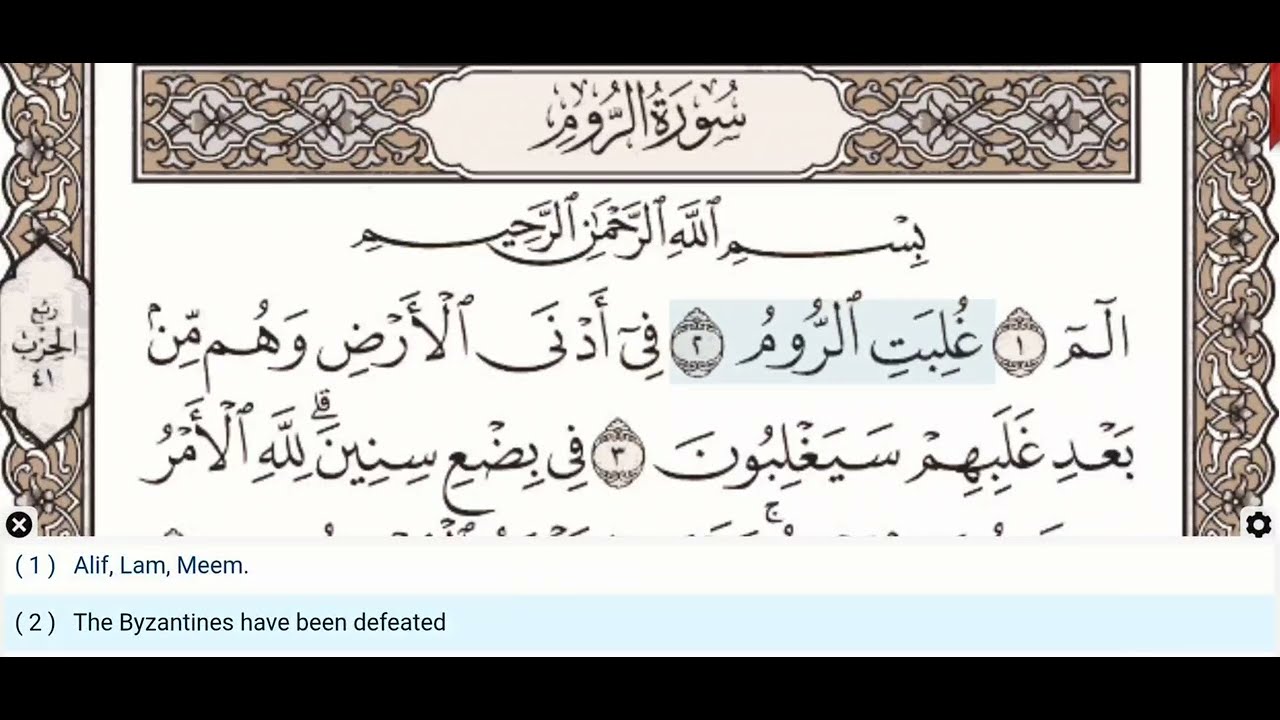 سُورَةُ الرُّومِ
بِسْمِ ٱللَّهِ ٱلرَّحْمَٰنِ ٱلرَّحِيمِ
الٓمٓ ١ غُلِبَتِ ٱلرُّومُ ٢ فِىٓ أَدْنَى ٱلْأَرْضِ وَهُم مِّنۢ
ربع
الحِزْب
٤١
بَعْدِ غَلَبِهِمْ سَيَغْلِبُونَ ٣ فِى بِضْعِ سِنِينَ ۗ لِلَّهِ ٱلْأَمْرُ
( 1 ) Alif, Lam, Meem.
( 2 ) The Byzantines have been defeated